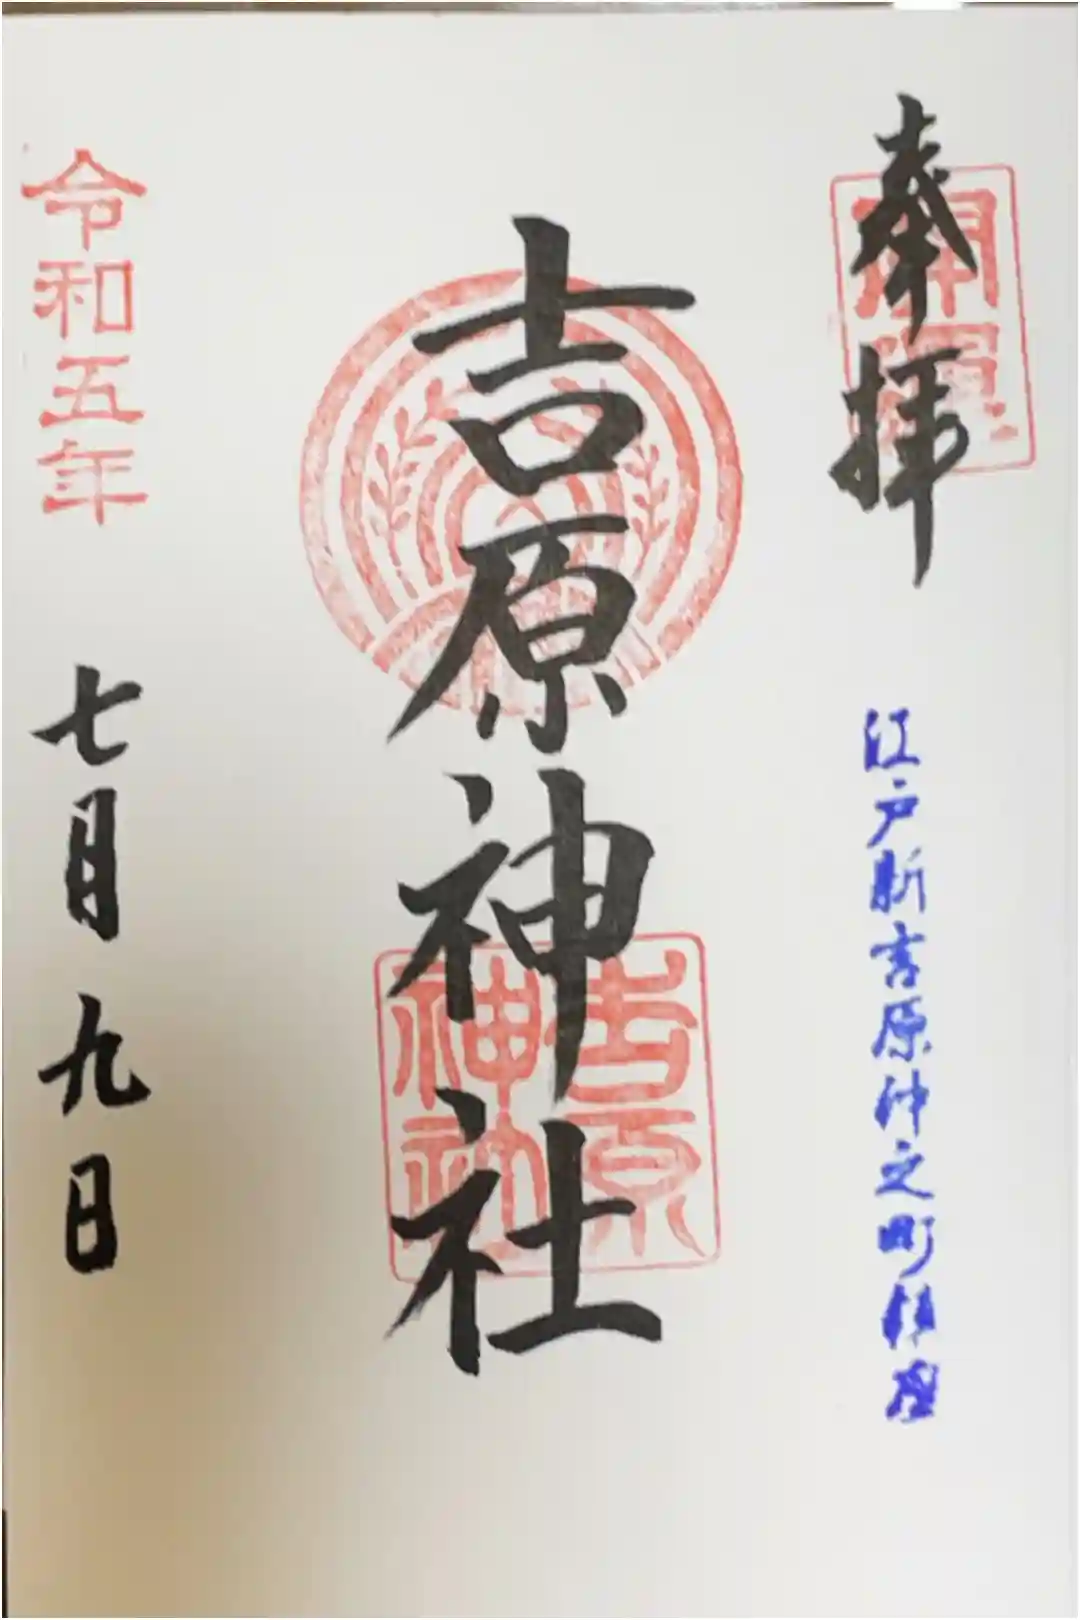 奉拝
開運
江戸新吉原仲之町
吉原神社
吉原
神社
令和五年
七月九日